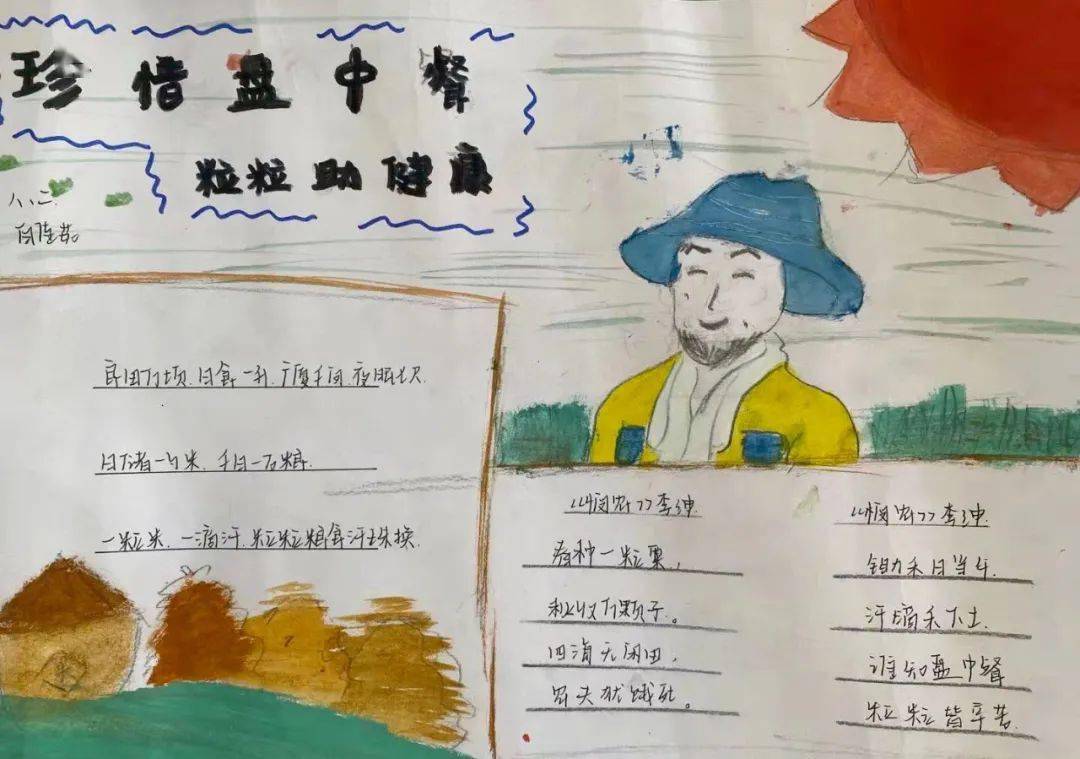 珍惜盘中餐
粒粒助健康
八.二.
良田万顷.日食一升.广厦千间.夜眠七尺.
日省一勺米.千日一石粮.
一粒米.一滴汗.粒粒粮食汗珠换.
《悯农》李绅
春种一粒粟,
秋收万颗子。
四海无闲田,
农夫犹饿死。
《悯农》李绅
锄禾日当午.
汗滴禾下土.
谁知盘中餐
粒粒皆辛苦.